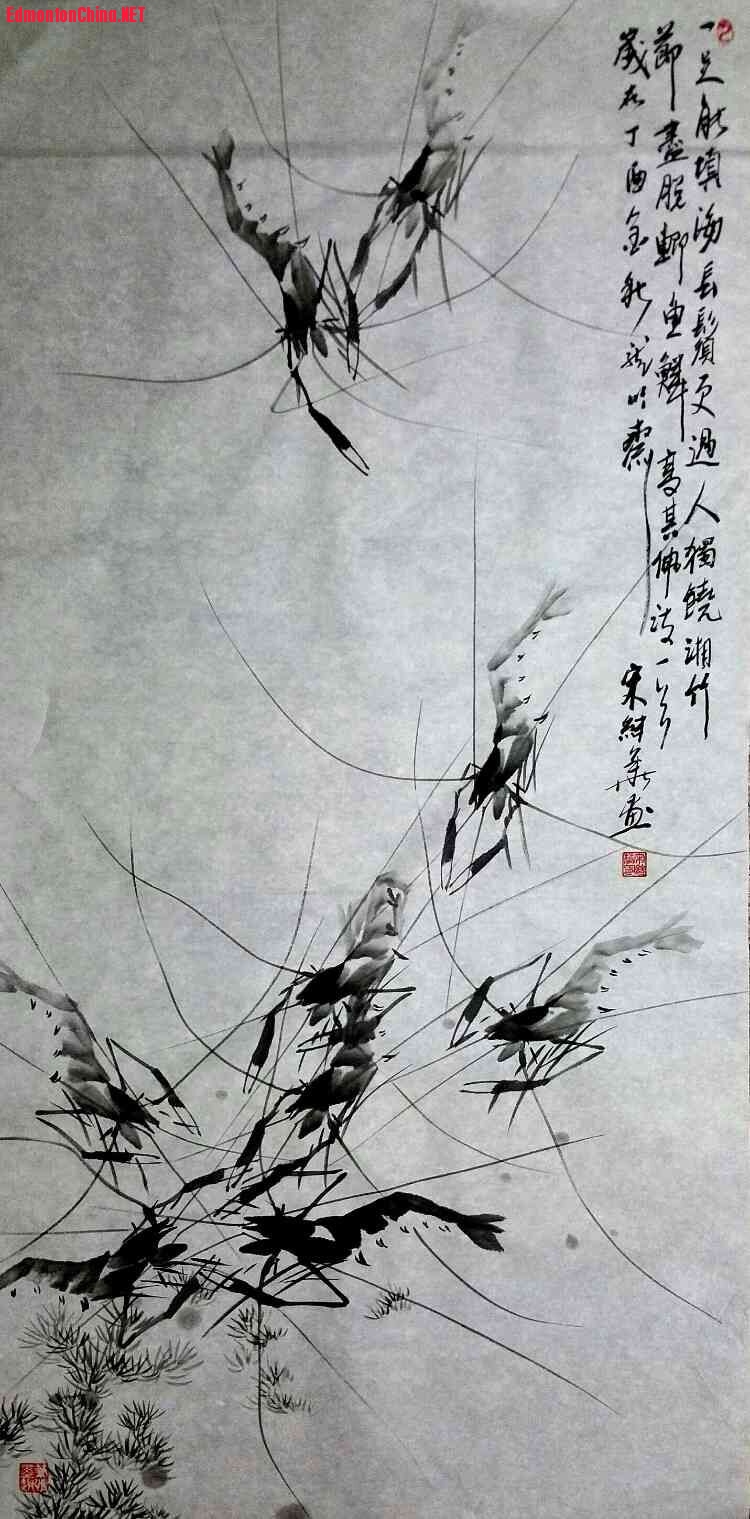 EdmontonChina.NET
一足能填海長鬚更過人獨饒湘竹
節盡脱鯽魚鱗高其佩詩一首
歲在丁酉金秋龍吟齋
宋 華畫